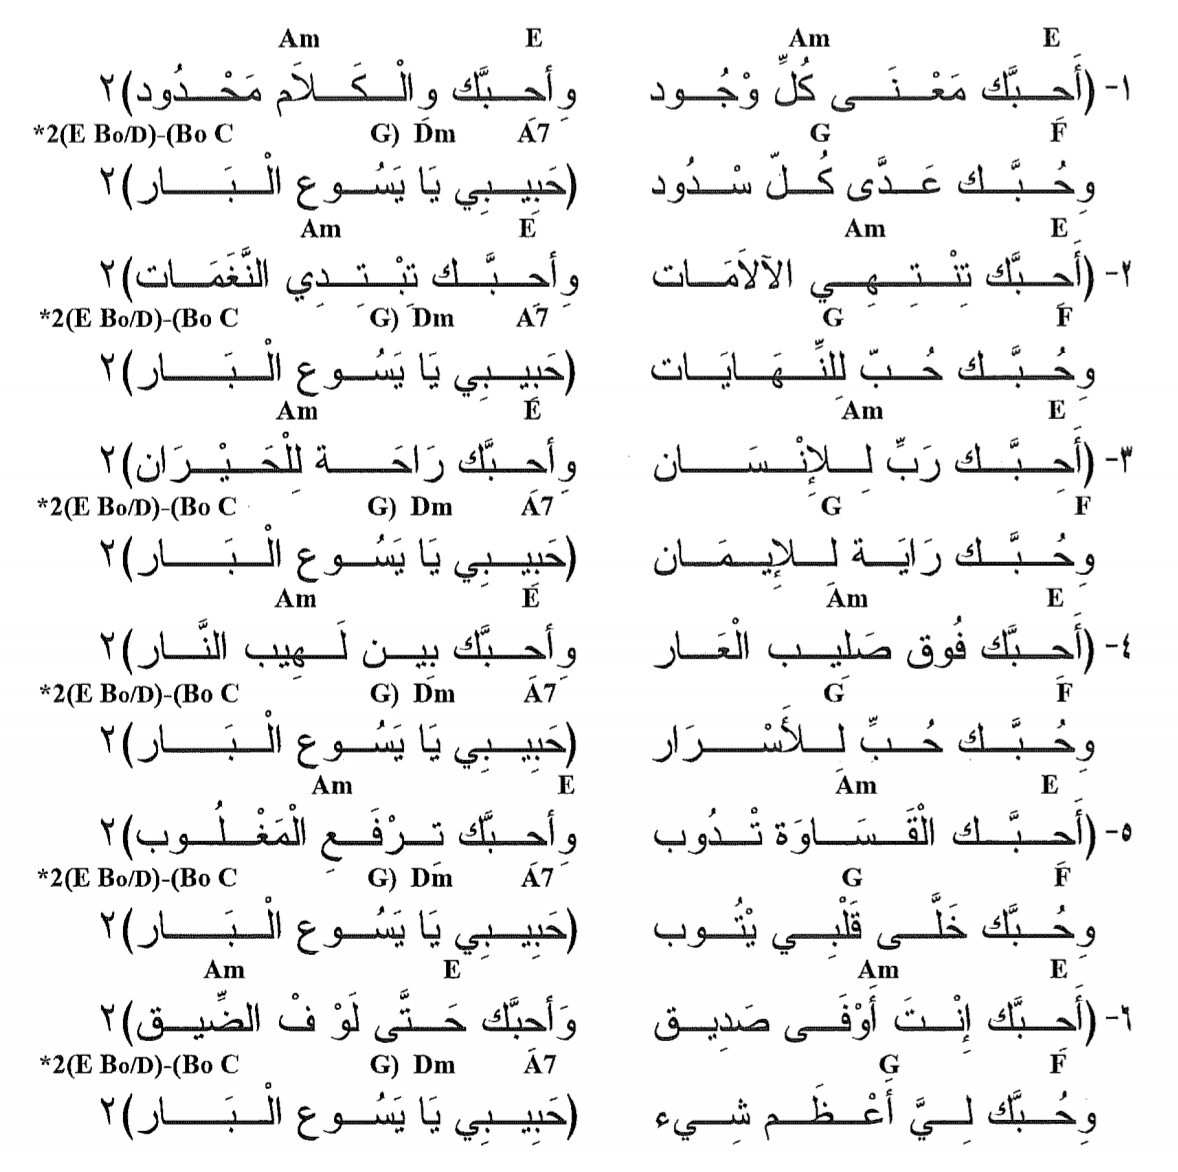 E Am E Am
١- (أَحِبَّك مَعْنَى كُلِّ وْجُود وِأحِبَّك والْكَلاَم مَحْدُود)٢
F G A7 Dm (G *2(E Bo/D)-(Bo C
وِحُبَّك عَدَّى كُلّ سْدُود (حَبِيبِي يَا يَسُوع الْبَار)٢
E Am E Am
٢- (أَحِبَّك تِنْتِهِي الآلاَمَات وِأحِبَّك تِبْتِدِي النَّغَمَات)٢
F G A7 Dm (G *2(E Bo/D)-(Bo C
وِحُبَّك حُبّ لِلنِّهَايَات (حَبِيبِي يَا يَسُوع الْبَار)٢
E Am E Am
٣- (أَحِبَّك رَبِّ لِلإِنْسَان وِأحِبَّك رَاحَة لِلْحَيْرَان)٢
F G A7 Dm (G *2(E Bo/D)-(Bo C
وِحُبَّك رَايَة لِلإِيمَان (حَبِيبِي يَا يَسُوع الْبَار)٢
E Am E Am
٤- (أَحِبَّك فُوق صَلِيب الْعَار وِأحِبَّك بِين لَهِيب النَّار)٢
F G A7 Dm (G *2(E Bo/D)-(Bo C
وِحُبَّك حُبِّ لِلأَسْرَار (حَبِيبِي يَا يَسُوع الْبَار)٢
E Am E Am
٥- (أَحِبَّك الْقَسَاوَة تْدُوب وِأحِبَّك تِرْفَعِ الْمَغْلُوب)٢
F G A7 Dm (G *2(E Bo/D)-(Bo C
وِحُبَّك خَلَّى قَلْبِي يْتُوب (حَبِيبِي يَا يَسُوع الْبَار)٢
E Am E Am
٦- (أَحِبَّك إِنْتَ أَوْفَى صَدِيق وَأحِبَّك حَتَّى لَوْ فْ الضِّيق)٢
F G A7 Dm (G *2(E Bo/D)-(Bo C
وِحُبَّك لِيَّ أَعْظَم شِيء (حَبِيبِي يَا يَسُوع الْبَار)٢